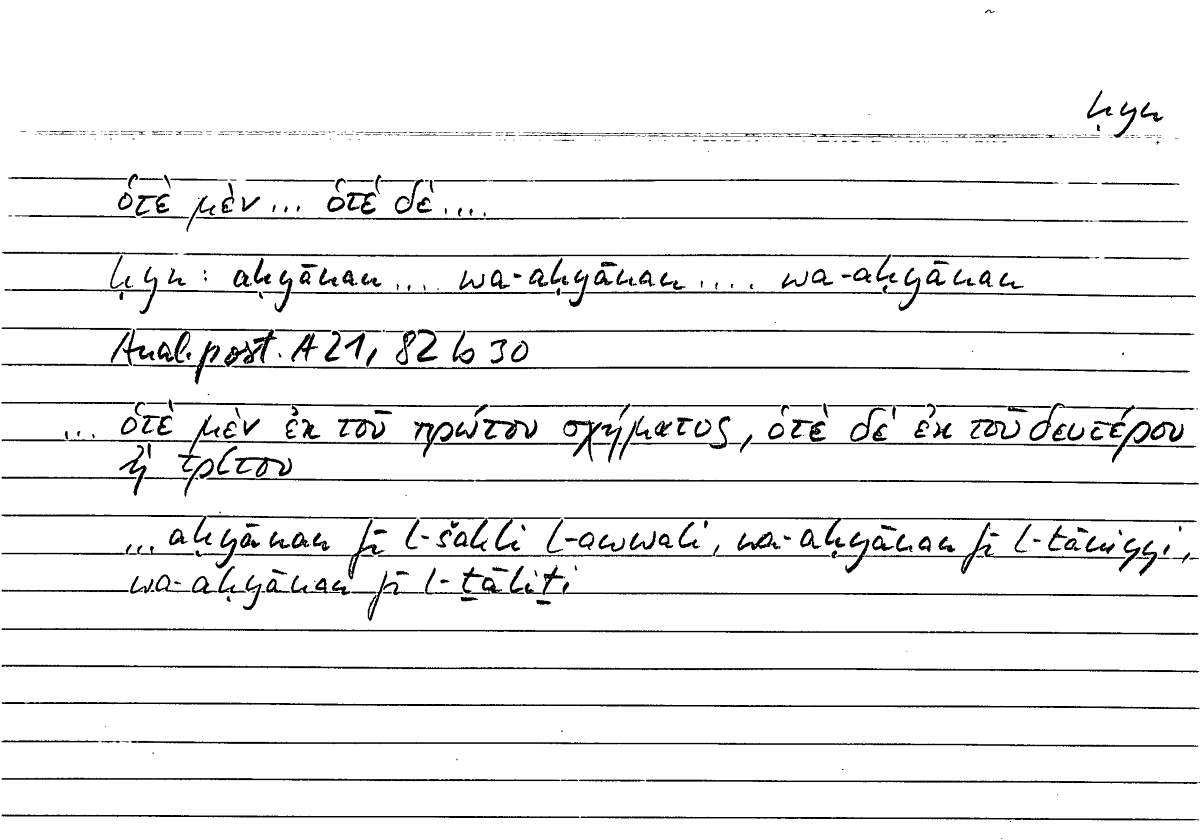 ḥyn
ὁτὲ μὲν ... ὁτὲ δὲ ....
ḥyn : aḥyānan .... wa-aḥyānan ..... wa-aḥyānan
Anal. post. A 21, 82 b 30
... ὁτὲ μὲν ἐκ τοῦ πρώτου σχήματος, ὁτὲ δὲ ἐκ τοῦ δευτέρου
ἢ τρίτου
... aḥyānan fī l-šakli l-awwali, wa-aḥyānan fī l-tāniyyi,
wa-aḥyānan fī l-ṯāliṯi